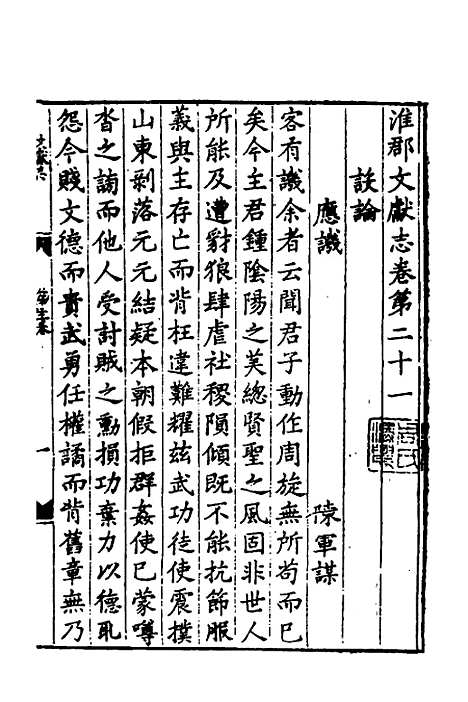 淮郡文獻志卷第二十一
談論
應譏
陳軍謀
客有譏余者云聞君子動作周旋無所苟而已
矣今主君鍾陰陽之美總賢聖之風固非世人
所能及遭豺狼肆虐社稷隕傾既不能抗節服
義與主存亡而背枉違難耀茲武功徒使震撲
山東剥落元元結疑本朝假拒群姦使已蒙噂
沓之謗而他人受討賊之勳損功棄力以德取
怨今賤文德而貴武勇任權譎而背舊章無乃